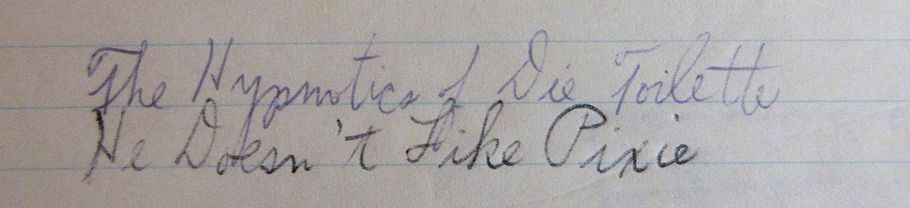 The Hypnotics of Die Toilette
He Doesn't Like Pixie